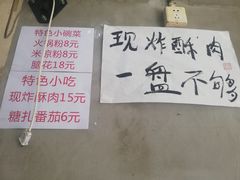 特色小碗菜
火锅粉8元
米凉粉8元
脑花18元
特色小吃
现炸酥肉15元
糖扎番茄6元
现炸酥肉
一盘不够